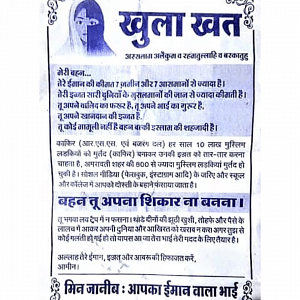 खुला खत
अस्सलाम अलैकुम व रहमतुल्लाहि व बरकातुहु
मेरी बहन...
तेरे ईमान की कीमत 7 ज़मीन और 7 आसमानों से ज्यादा है।
तेरी इज्जत सारी दुनियाँ के मुसलमानों की जान से ज्यादा कीमती है।
तू अपने वालिद का फखर है, तू अपने भाई का गुरूर है,
तू अपने खानदान की इज्जत है,
तू कोई मामूली नहीं है बहन बल्की इस्लाम की शहजादी है।
काफिर (आर.एस.एस. एवं बजरंग दल) हर साल 10 लाख मुस्लिम
लड़कियों को मुर्तद (काफिर) बनाकर उनकी इज्जत को तार-तार करना
चाहता है, अमरावती शहर की 800 से ज्यादा मुस्लिम लड़कियां मुर्तद हो
चुकी है। सोशल मीडिया (फेसबुक, इंस्टाग्राम आदि) के जरिए और स्कूल
और कॉलेज में आपको दोस्ती के बहाने फंसाया जाता है।
बहन तू अपना शिकार ना बनना।
तू भगवा लव ट्रैप में न फंसना। चंद दिनों की झूठी खुशी, तोहफे और पैसे के
लालच में आकर अपनी दुनिया और आखिरत को खराब न कर। अगर तुझ से
कोई गलती हो गई हो तो वापस आ जा तेरा भाई तेरी मदद के लिए तैयार है।
अल्लाह तेरे ईमान, इज्जत और आबरू की हिफाजत करें,
आमीन।
मिन जानीब : आपका ईमान वाला भाई